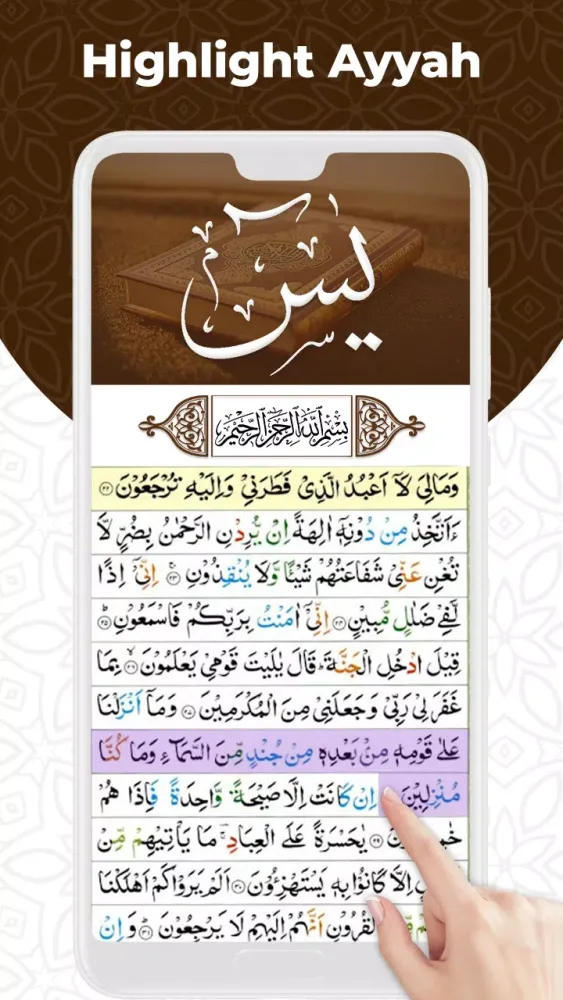 Highlight Ayyah
يٰسٓ
بِسْمِ اللّٰهِ الرَّحْمٰنِ الرَّحِيْمِ
وَمَا لِيَ لَاۤ اَعْبُدُ الَّذِيْ فَطَرَنِيْ وَاِلَيْهِ تُرْجَعُوْنَ ۲۲
ءَاَتَّخِذُ مِنْ دُوْنِهٖۤ اٰلِهَةً اِنْ يُّرِدْنِ الرَّحْمٰنُ بِضُرٍّ لَّا
تُغْنِ عَنِّيْ شَفَاعَتُهُمْ شَيْـًٔا وَّلَا يُنْقِذُوْنِ ۲۳ اِنِّيْۤ اِذًا
لَّفِيْ ضَلٰلٍ مُّبِيْنٍ ۲۴ اِنِّيْۤ اٰمَنْتُ بِرَبِّكُمْ فَاسْمَعُوْنِ ۲۵
قِيْلَ ادْخُلِ الْجَنَّةَ ؕ قَالَ يٰلَيْتَ قَوْمِيْ يَعْلَمُوْنَ ۲۶ بِمَا
غَفَرَ لِيْ رَبِّيْ وَجَعَلَنِيْ مِنَ الْمُكْرَمِيْنَ ۲۷ وَمَاۤ اَنْزَلْنَا
عَلٰى قَوْمِهٖ مِنْۢ بَعْدِهٖ مِنْ جُنْدٍ مِّنَ السَّمَآءِ وَمَا كُنَّا
مُنْزِلِيْنَ اِنْ كَانَتْ اِلَّا صَيْحَةً وَّاحِدَةً فَاِذَا هُمْ
يٰحَسْرَةً عَلَى الْعِبَادِ ۚ مَا يَاْتِيْهِمْ مِّنْ
اِلَّا كَانُوْا بِهٖ يَسْتَهْزِءُوْنَ ۳۰ اَلَمْ يَرَوْا كَمْ اَهْلَكْنَا
الْقُرُوْنِ اَنَّهُمْ اِلَيْهِمْ لَا يَرْجِعُوْنَ ۳۱ وَاِنْ